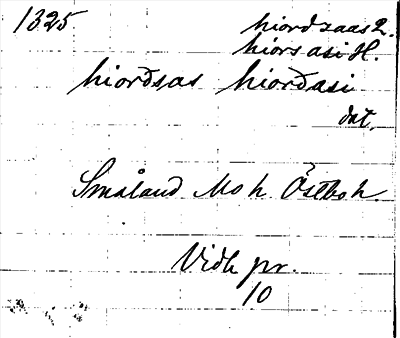 1325 hiordzaas 2.
hiors asi H.
hiordsas hiordasi
dat.
Småland Mo h Östbo h.
Vidh pr.
10